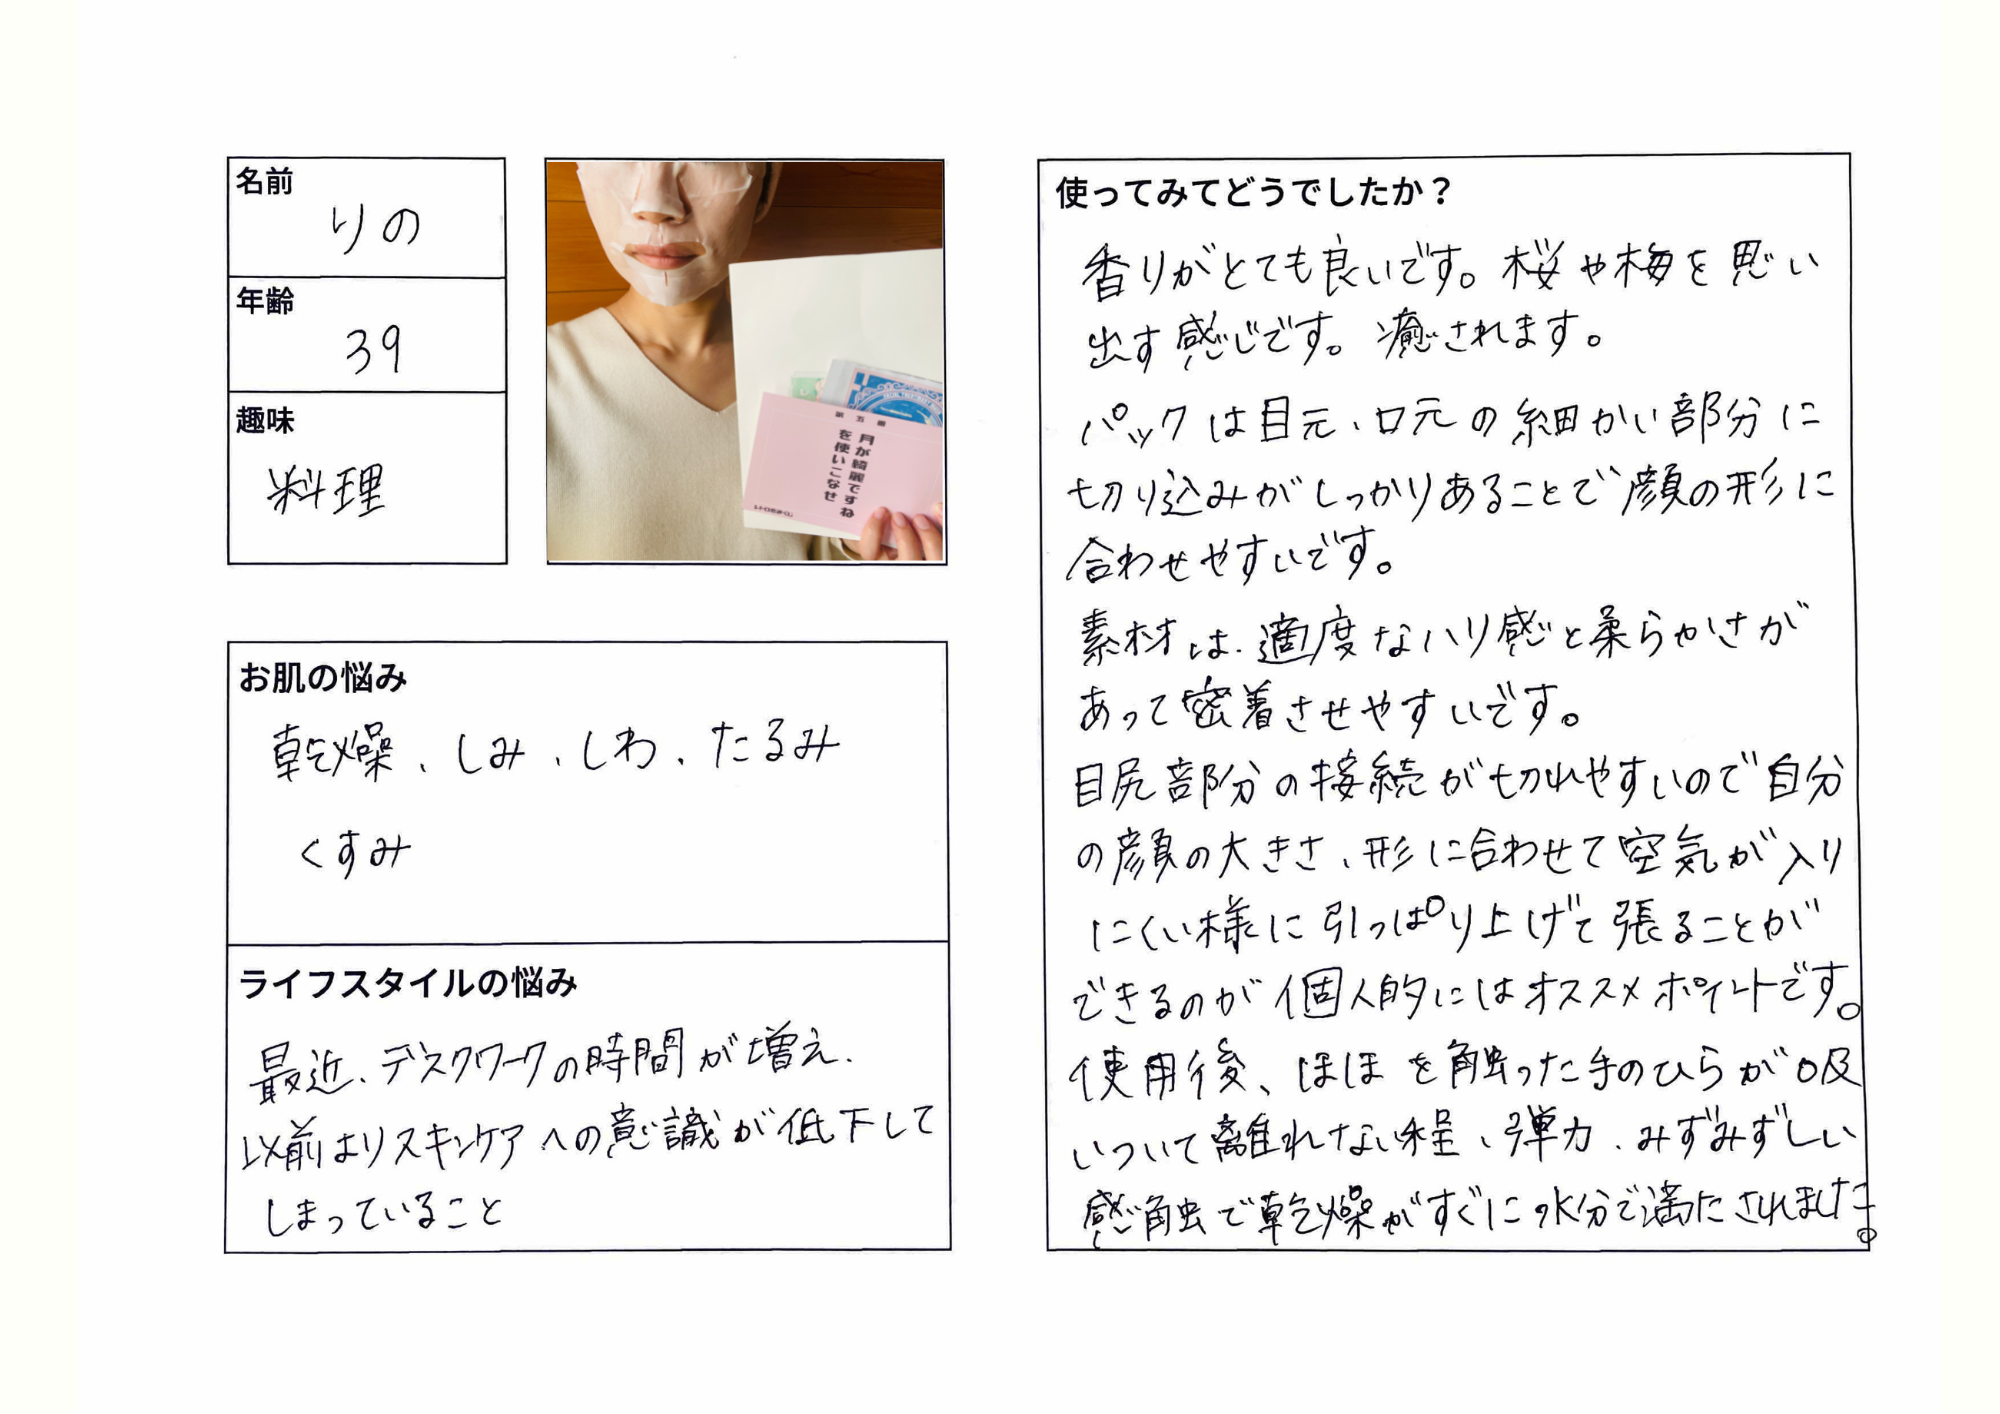 名前
りの
年齢
39
趣味
料理
第五巻
月が綺麗ですね
を使いこなせ
お肌の悩み
乾燥、しみ、しわ、たるみ
くすみ
ライフスタイルの悩み
最近、デスクワークの時間が増え、
以前よりスキンケアへの意識が低下して
しまっていること
使ってみてどうでしたか？
香りがとても良いです。桜や梅を思い
出す感じです。癒されます。
パックは目元、口元の細かい部分に
切り込みがしっかりあることで顔の形に
合わせやすいです。
素材は、適度なハリ感と柔らかさが
あって密着させやすいです。
目尻部分の接続が切れやすいので自分
の顔の大きさ、形に合わせて空気が入り
にくい様に引っぱり上げて張ることが
できるのが個人的にはオススメポイントです。
使用後、ほほを触った手のひらが吸
いついて離れない程、弾力、みずみずしい
感触で乾燥がすぐに水分で満たされました。